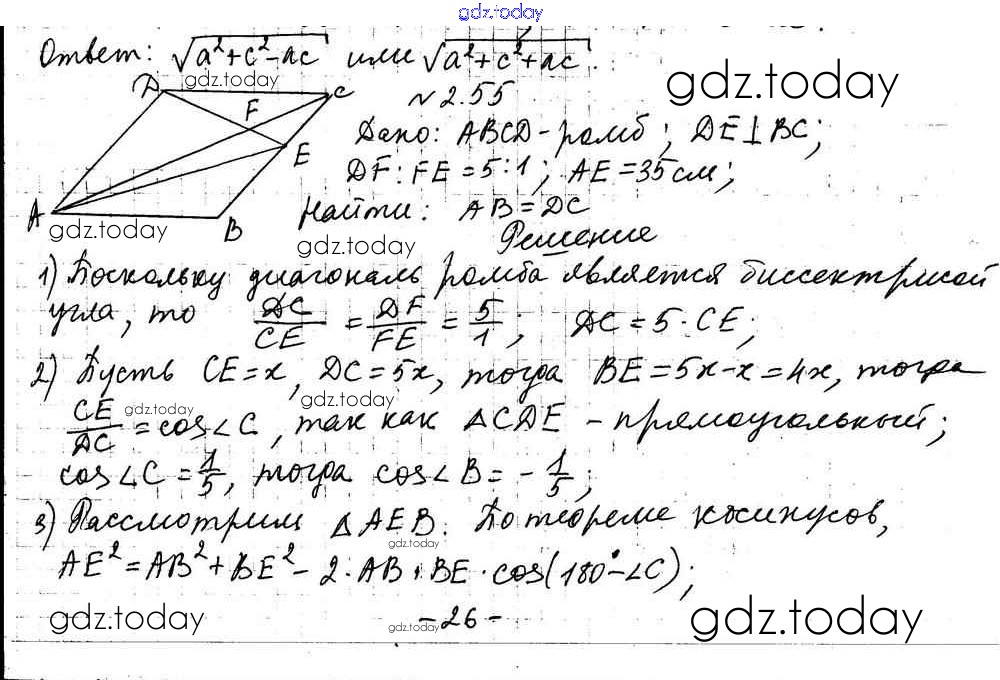 gdz.today
Ответ: √a²+c²-ac или √a²+c²+ac.
gdz.today
gdz.today
D C F E A B
№ 2.55
Дано: ABCD - ромб; DE⊥BC;
DF : FE = 5:1; AE = 35 см;
Найти: AB = DC
gdz.today
gdz.today
Решение
1) Поскольку диагональ ромба является биссектрисой
угла, то DC/CE = DF/FE = 5/1; DC = 5·CE;
2) Пусть CE = x, DC = 5x, тогда BE = 5x-x = 4x, тогда
gdz.today
CE/DC = cos∠C, так как △CDE - прямоугольный;
cos∠C = 1/5, тогда cos∠B = -1/5;
3) Рассмотрим △AEB. По теореме косинусов,
gdz.today
AE² = AB² + BE² - 2·AB·BE·cos(180°-∠C);
gdz.today
gdz.today
- 26 -
gdz.today